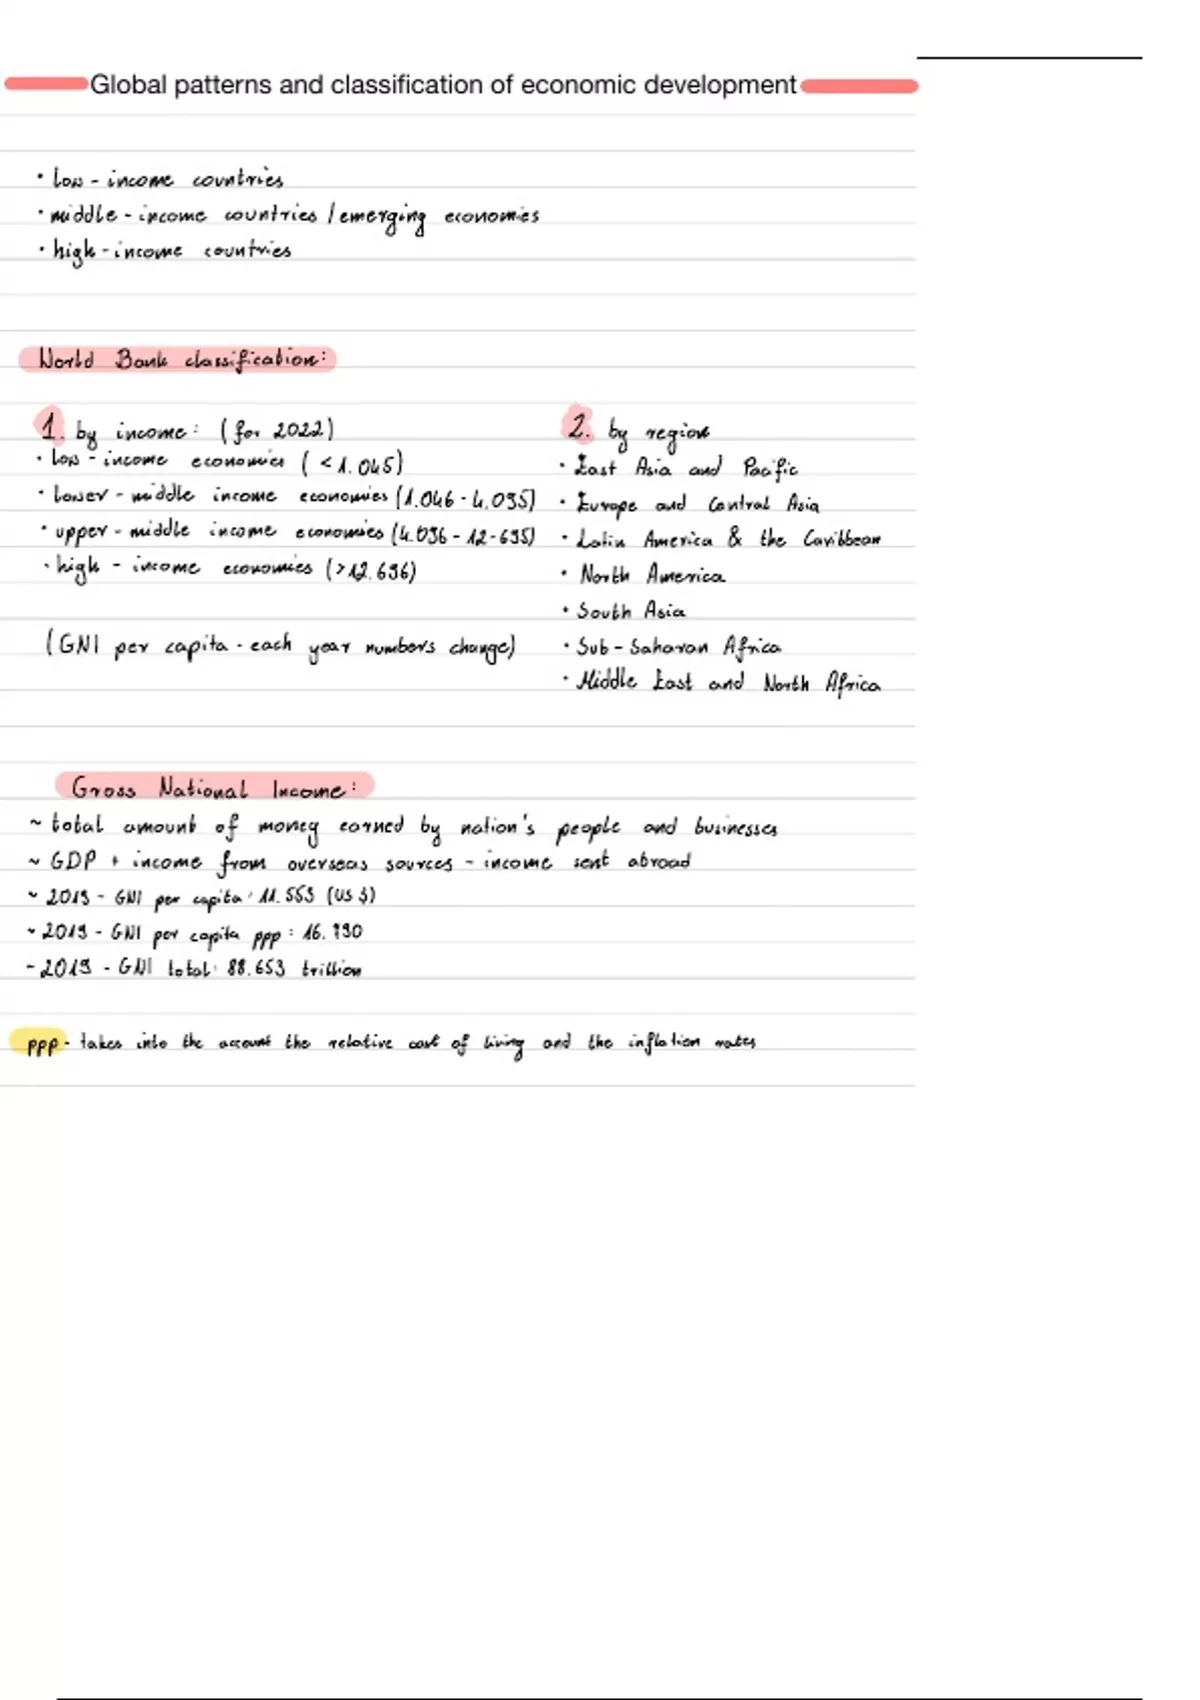 Global patterns and classification of economic development
• low-income countries
• middle-income countries / emerging economies
• high-income countries
World Bank classification:
1. by income: (for 2022)
• low-income economies ( <1.045)
• lower-middle income economies (1.046-4.095)
• upper-middle income economies (4.096-12-695)
• high-income economies (>12.696)
(GNI per capita - each year numbers change)
2. by region
• East Asia and Pacific
• Europe and Central Asia
• Latin America & the Caribbean
• North America
• South Asia
• Sub-Saharan Africa
• Middle East and North Africa
Gross National Income:
~ total amount of money earned by nation's people and businesses
~ GDP + income from overseas sources - income sent abroad
~ 2019 - GNI per capita: 11.559 (US $)
~ 2019 - GNI per capita ppp:
~ 2019 - GNI total: 88.653 trillion
ppp - takes into the account the relative cost of living and the inflation rates